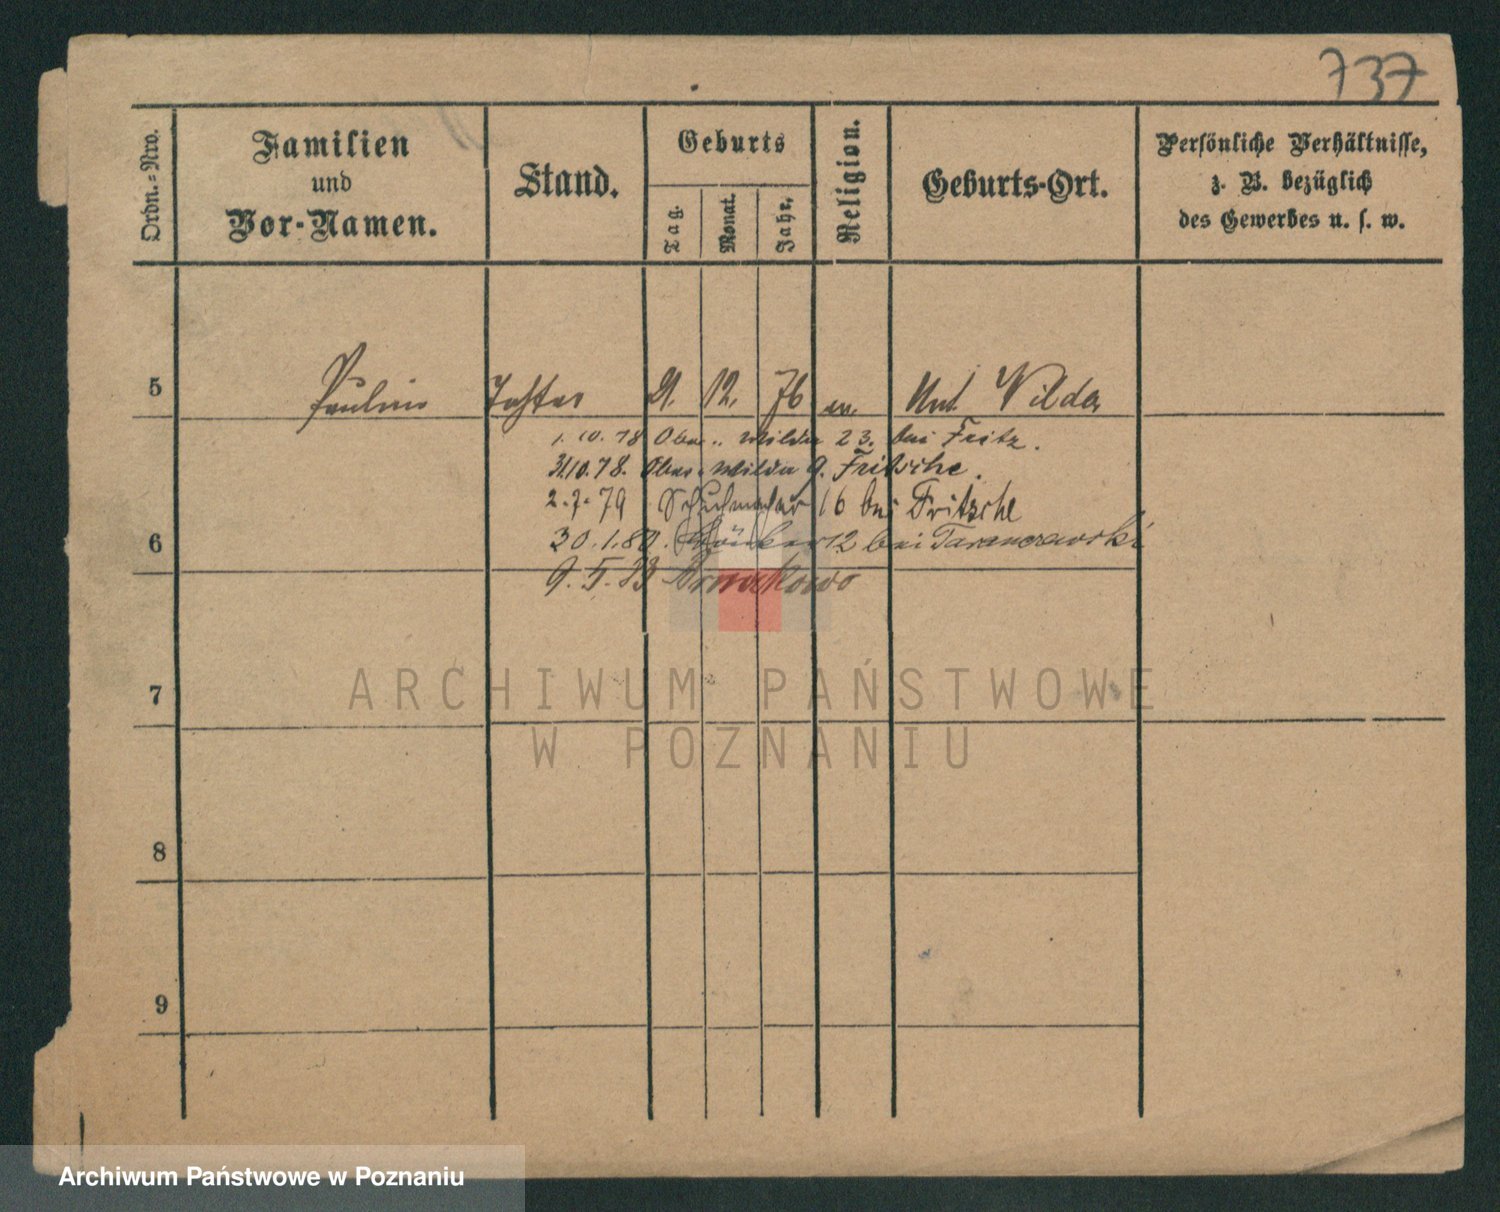 737
Ordn.-Nro.
Familien
und
Vor-Namen.
Stand.
Geburts
Tag.
Monat.
Jahr.
Religion.
Geburts-Ort.
Persönliche Verhältnisse,
z. B. bezüglich
des Gewerbes u. s. w.
5 Pauline Tochter 21. 12. 76 Unt Wilda
1. 10. 78 Ober .. Wilda 23. bei Fritz.
31.10.78. Ober-Wilda 9. Fritsche.
2.7.79 16 bei Fritzsche
6
30.1.80. 12 bei Taranczewski
9.5.83
7
8
9
ARCHIWUM PAŃSTWOWE
W POZNANIU
Archiwum Państwowe w Poznaniu